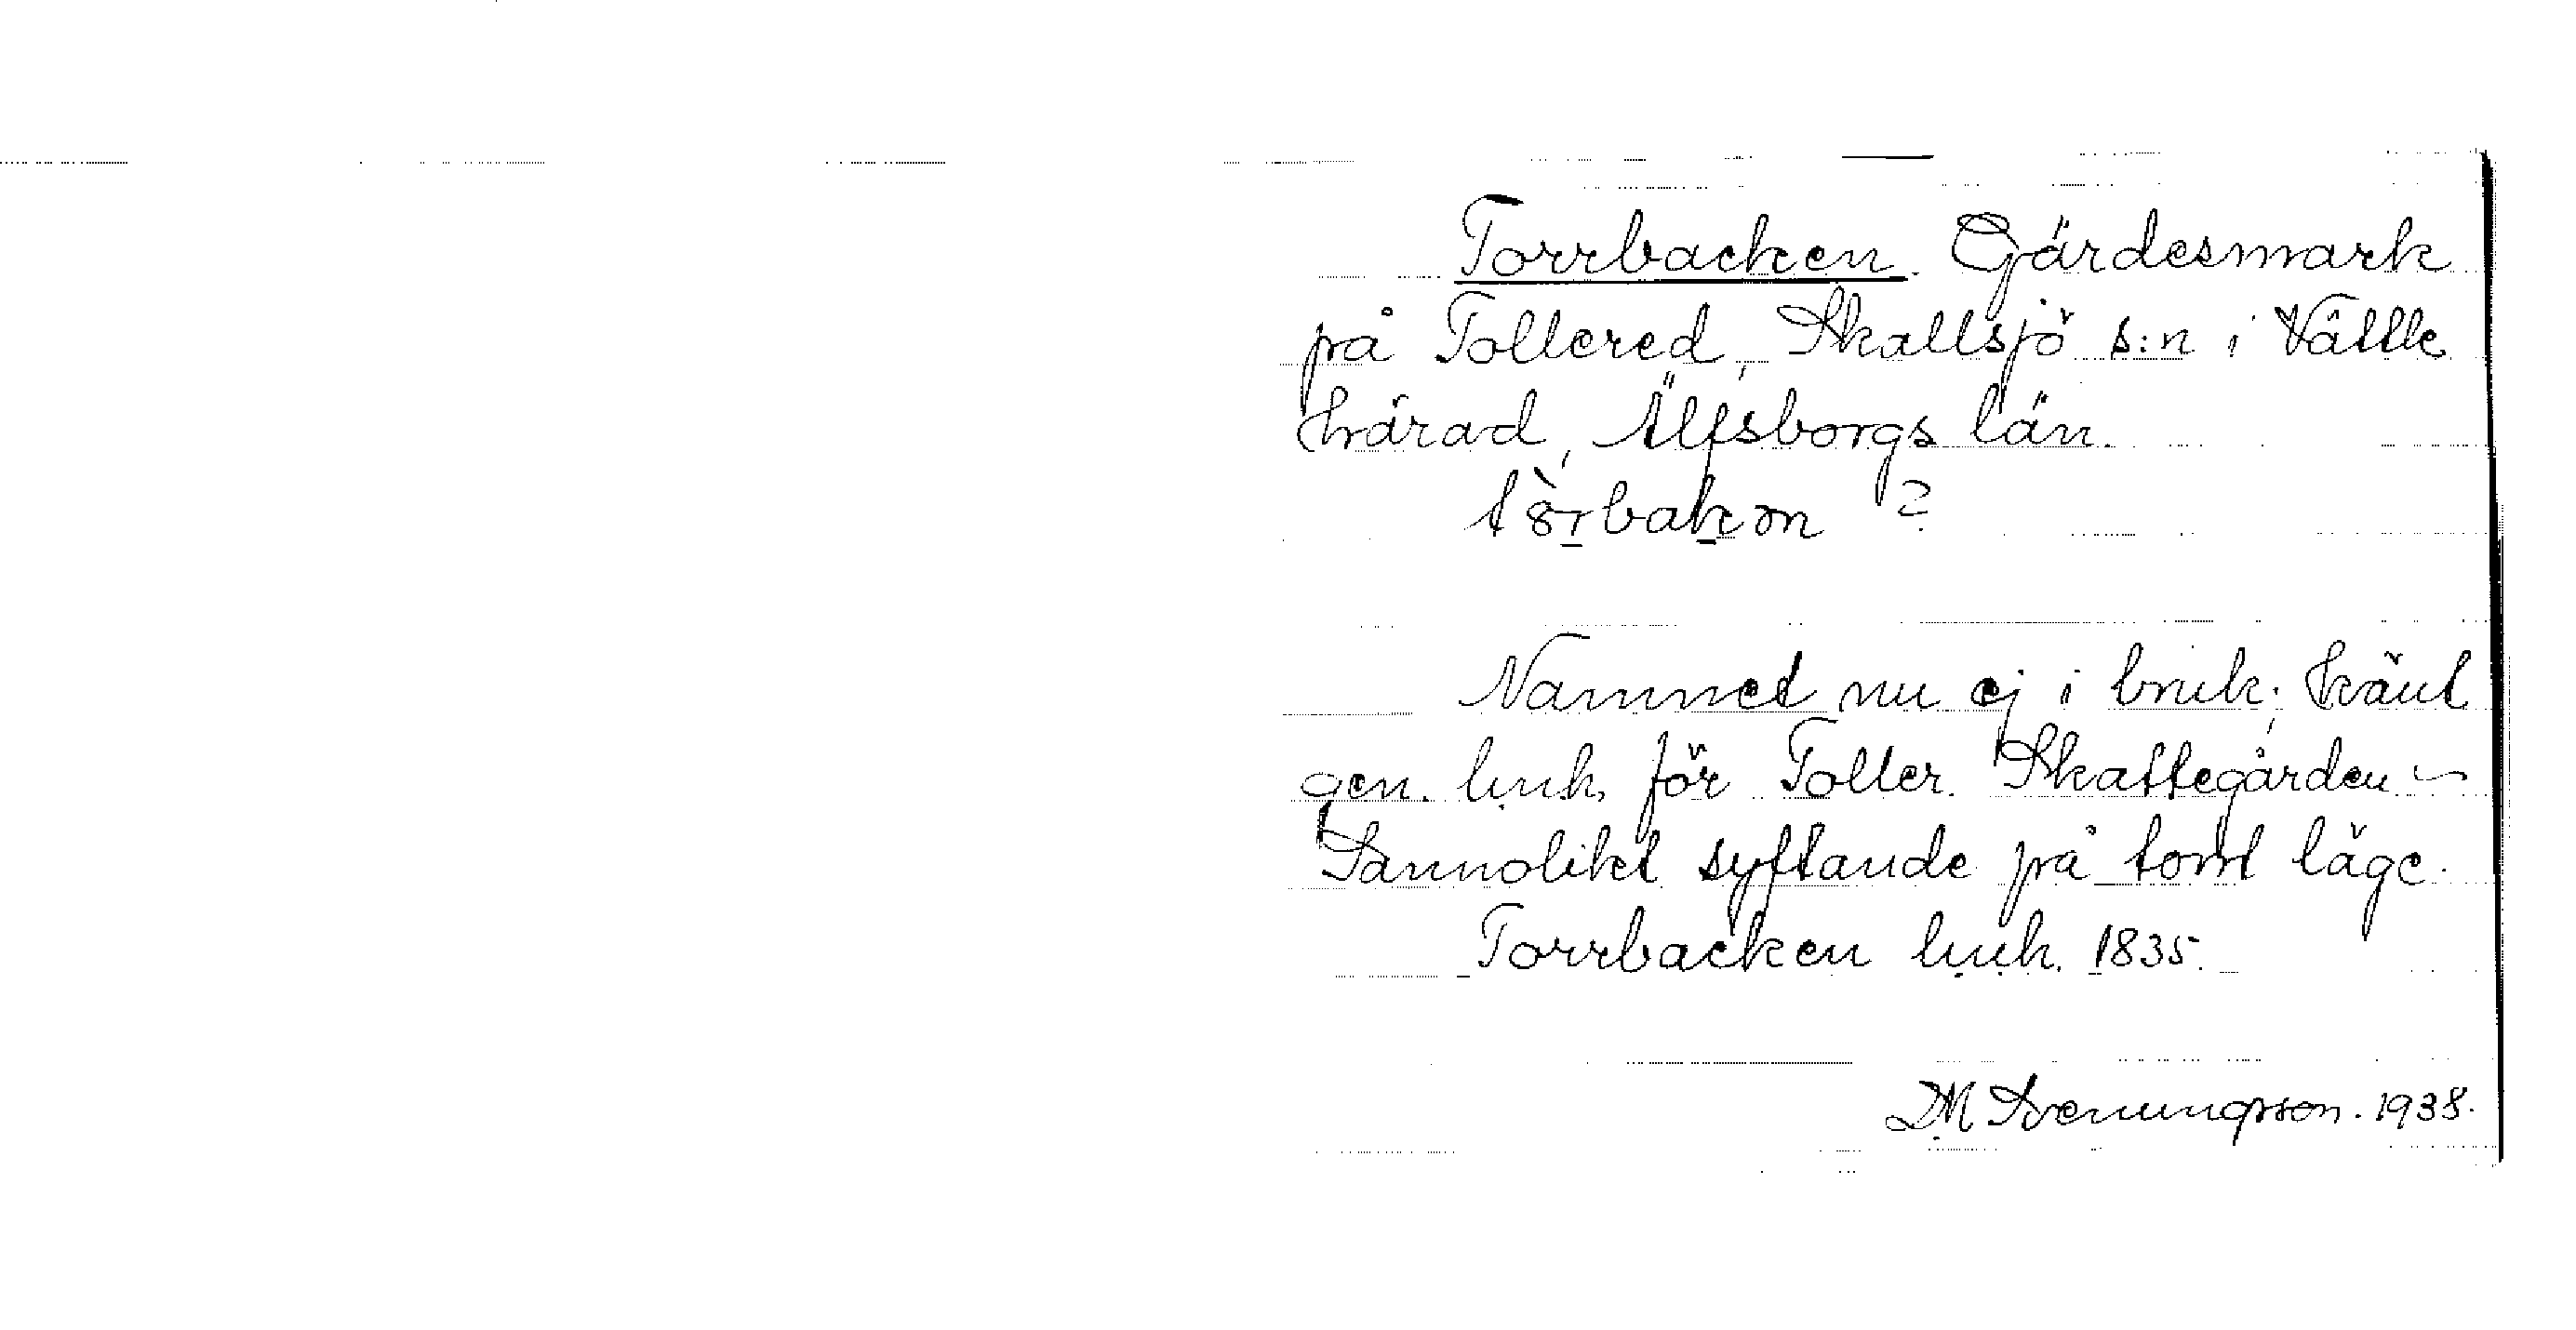 Torrbacken. Gärdesmark
på Tollered, Skallsjö s:n i Vättle
härad, Älfsborgs län.
?
Namnet nu ej i bruk; känt
gen. lmh. för Toller. Skattegården –
Sannolikt syftande på torrt läge.
Torrbacken lmh. 1835.
DM Svenungsson. 1938.